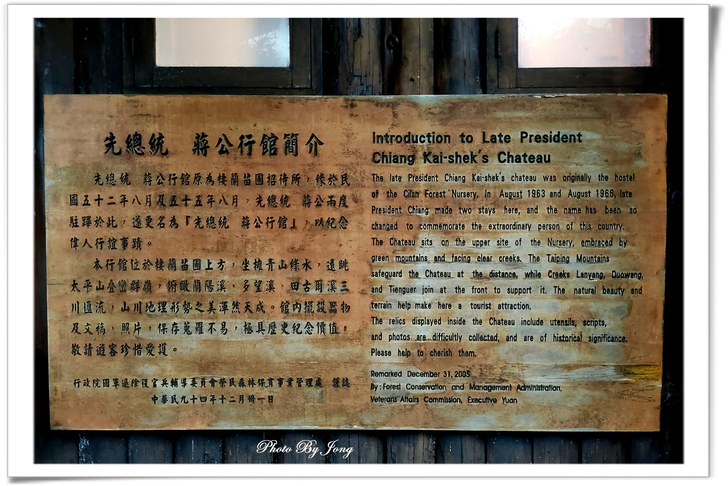 先總統 蔣公行館簡介
先總統 蔣公行館原為棲蘭苗圃招待所，條於民
國五十二年八月及五十五年八月，先總統 蔣公兩度
駐驛於此，遂更名為『先總統 蔣公行館』，以紀念
偉人行誼事蹟。
本行館位於棲蘭苗圃上方，坐擁青山綠水，遠眺
太平山疊巒群嶺，俯瞰蘭陽溪、多望溪、田古爾溪三
川匯流，山川地理形勢之美渾然天成。館內擺設器物
及文稿，照片，保存蒐羅不易，極具歷史紀念價值。
敬請遊客珍惜愛護。
行政院國軍退除役官兵輔導委員會榮民森林保育事業管理處 謹誌
中華民九十四年十二月卅一日
Introduction to Late President
Chiang Kai-shek's Chateau
The late President Chiang Kai-shek's chateau was originally the hostel
of the Cilan Forest Nursery. In August 1963 and August 1966, late
President Chiang made two stays here, and the name has been so
changed to commemorate the extraordinary person of this country.
The Chateau sits on the upper site of the Nursery, embraced by
green mountains and facing clear creeks. The Taiping Mountains
safeguard the Chateau at the distance, while Creeks Lanyang, Duowang,
and Tienguer join at the front to support it. The natural beauty and
terrain help make here a tourist attraction.
The relics displayed inside the Chateau include utensils, scripts,
and photos are difficultly collected, and are of historical significance.
Please help to cherish them.
Remarked December 31, 2005
By : Forest Conservation and Management Administration,
Veterans Affairs Commission, Executive Yuan
Photo By Jong